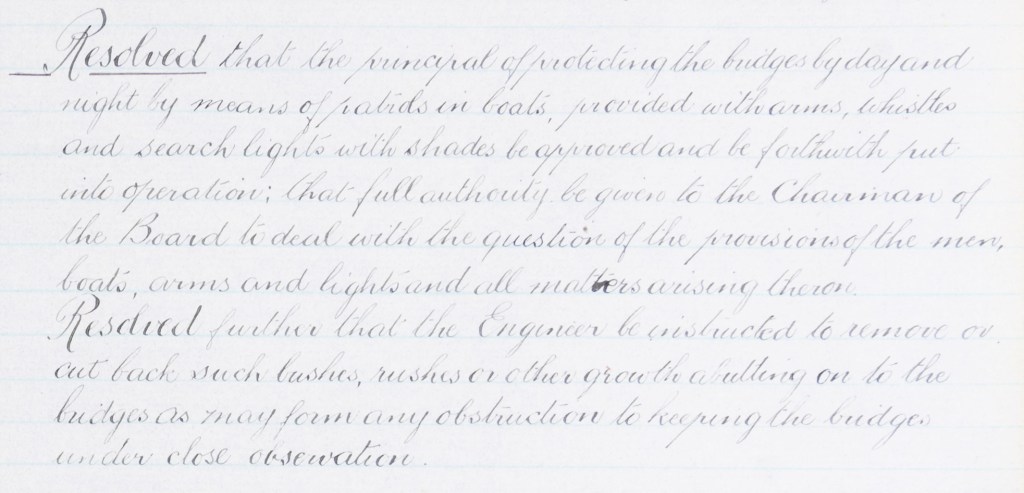 Resolved that the principal of protecting the bridges by day and
night by means of patrols in boats, provided with arms, whistles
and search lights with shades be approved and be forthwith put
into operation; that full authority be given to the Chairman of
the Board to deal with the question of the provisions of the men,
boats, arms and lights and all matters arising theron.
Resolved further that the Engineer be instructed to remove or
cut back such bushes, rushes or other growth abutting on to the
bridges as may form any obstruction to keeping the bridges
under close observation.